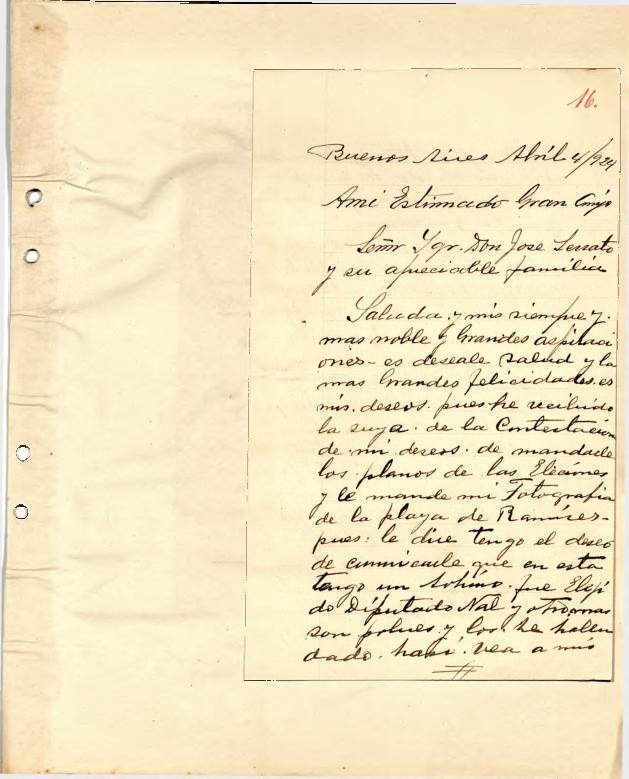 16.
Buenos Aires Abril 4/924
Ami Estimado Gran Amigo
Señr Ygr. Don Jose Serrato
y su apreciable familia
Saluda y mis siempre y
mas noble y Grandes aspiraci
ones - es deseale salud y la
mas Grandes felicidades. es
mis. deseos. pues he recibido
la suya. de la Contestación
de. mi. deseos. de mandale
los planos de las Eleciones
y le mande mi Fotografia
de la playa de Ramires-
pues: le dire tengo el deseo
de cumnicale que en esta
tengo un Sobrino. fue Elegi
do Diputado Nal y otro mas
son pobres. y los. he
dado. hasi. vea a mis